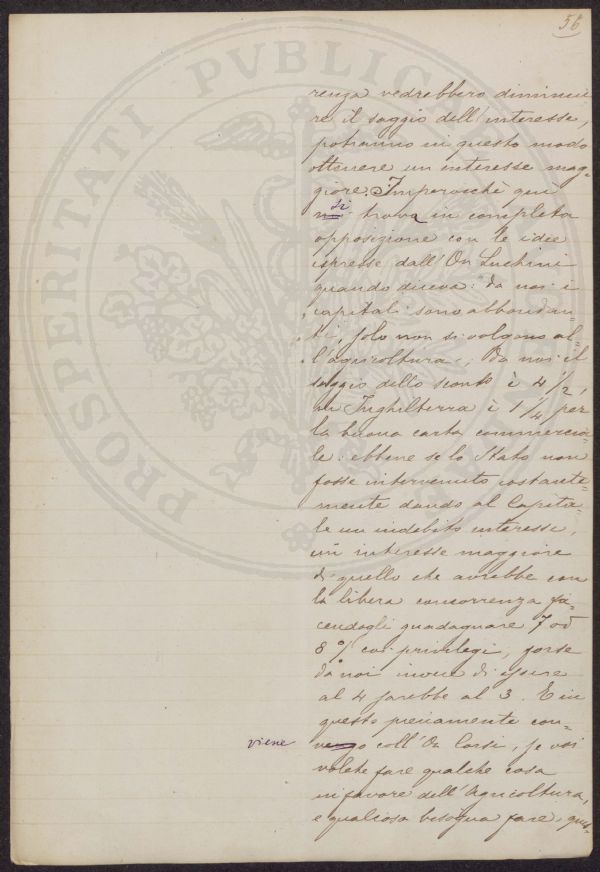 56
PROSPERITATI PVBLICAE
renza vedrebbero diminui
re il saggio dell'interesse,
potranno in questo modo
ottenere un interesse mag-
giore. Imperocché qui
si
trova in completa
opposizione con le idee
espresse dall'On Luchini
quando diceva: da noi i
capitali sono abbondan
ti, solo non si volgono al-
l'agricoltura. Da noi il
saggio dello sconto è 4 1/2,
in Inghilterra è 1 1/4 per
la buona carta commercia-
le: ebbene se lo Stato non
fosse intervenuto costante-
mente dando al Capita-
le un indebito interesse,
un interesse maggiore
di quello che avrebbe con
la libera concorrenza fa-
cendogli guadagnare 7 od
8 % coi privilegi, forse
da noi invece di essere
al 4 sarebbe al 3. E in
questo pienamente con-
viene
vengo coll'On Corsi, se voi
volete fare qualche cosa
in favore dell'Agricoltura,
e qualcosa bisogna fare, que-